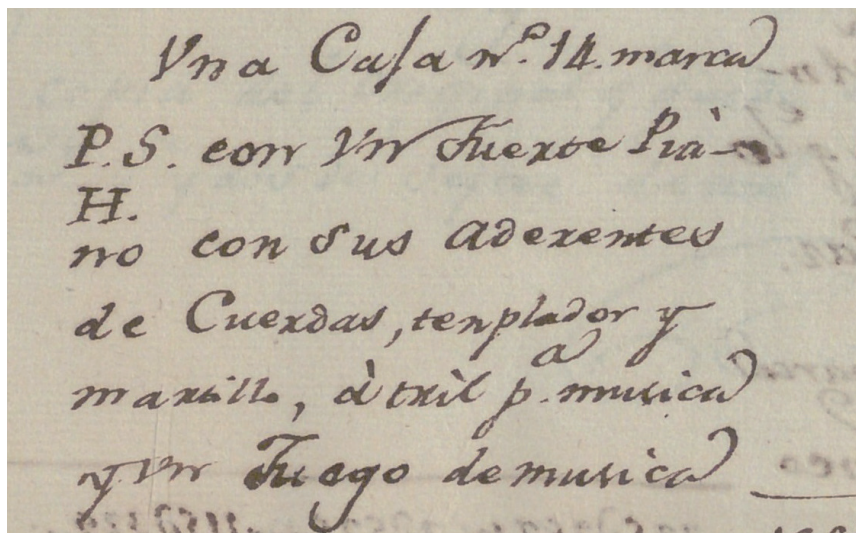 Vna Caja nº. 14. marca
P.S. con Vn Fuerte Pià-
H.
no con sus aderentes
de Cuerdas, tenplador y
martillo, àtril pª. musica
y Vn Juego de musica